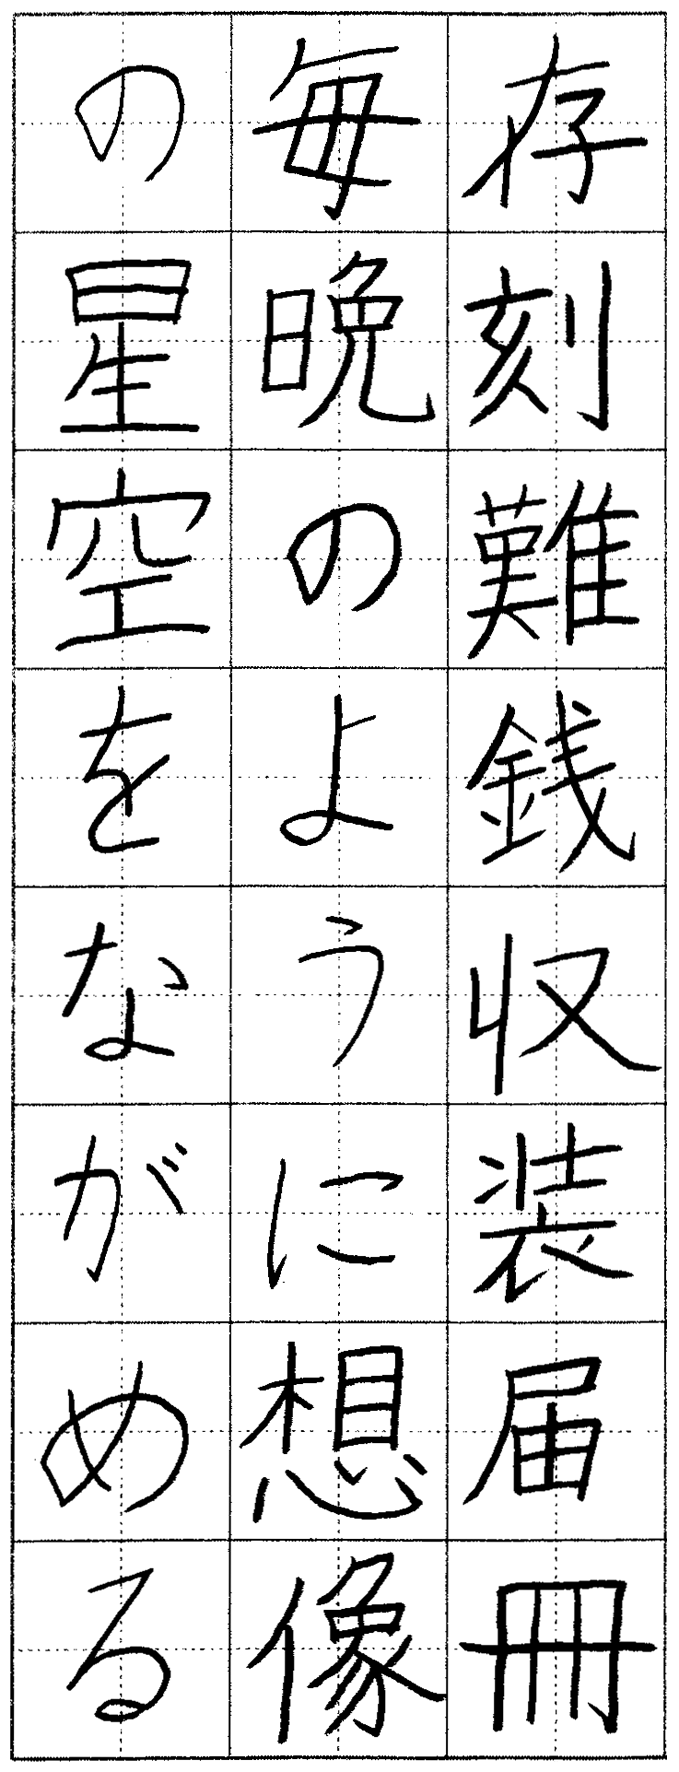 存刻難銭収装届冊
毎晩のように想像
の星空をながめる